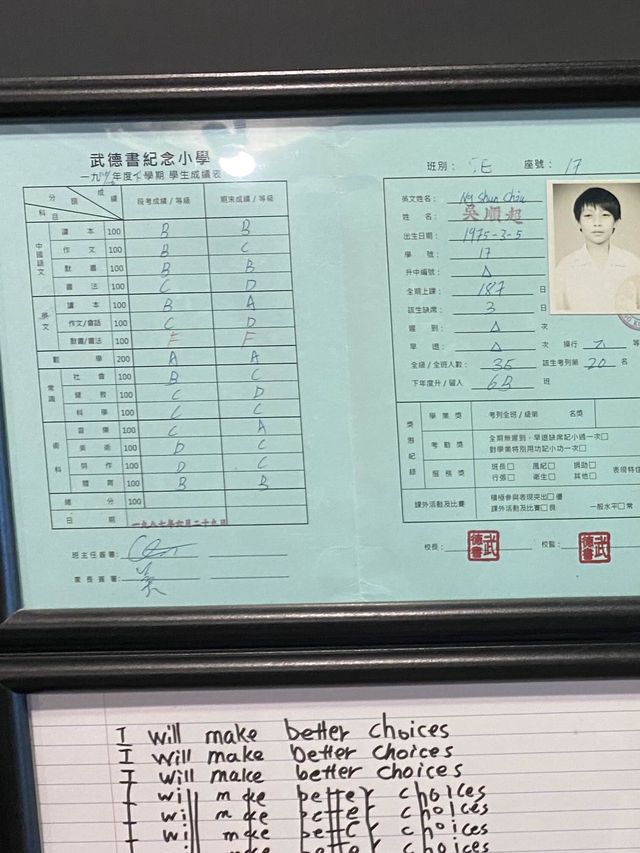 武德書紀念小學
學期 學生成績表
分 成
題 績
科 目
段考成績/等級 期末成績/等級
中國語文
讀 本 100 B B
作 文 100 B C
默 書 100 B B
書 法 100 C D
英文
讀 本 100 B A
作文/會話 100 C D
默書/書法 100 F F
數 學 200 A A
常識
社 會 100 B C
健 教 100 C D
科 學 100 C C
術科
音 樂 100 C A
美 術 100 D C
勞 作 100 D C
體 育 100 B B
總 分 100
日 期
班主任簽署:
家長簽署:
班別: 5E 座號: 17
英文姓名: Ng Shun Chiu
姓 名: 吳順超
出生日期: 1975-3-5
學 號: 17
升中編號: △
全期上課: 187 日
該生缺席: 3 日
遲 到: △ 次
早 退: △ 次 操行 乙 等
全級/全班人數: 35 該生考列第 20 名
下年度升/留入 6B 班
獎懲紀錄
學 業 獎 考列全班/級第 名獎
考 勤 獎 全期無遲到、早退缺席記小過一次□
對學業特別用功記小功一次□
服 務 獎 班長□ 風紀□ 捐助□
行張□ 衛生□ 其他□ 表現特佳
課外活動及比賽 積極參與表現突出□優
課外活動及比賽□良 一般水平□常
校長: 武德書 校監: 武德書
I will make better choices
I will make better choices
I will make better choices
I will make better choices
I will make better choices
I will make better choices
I will make better choices